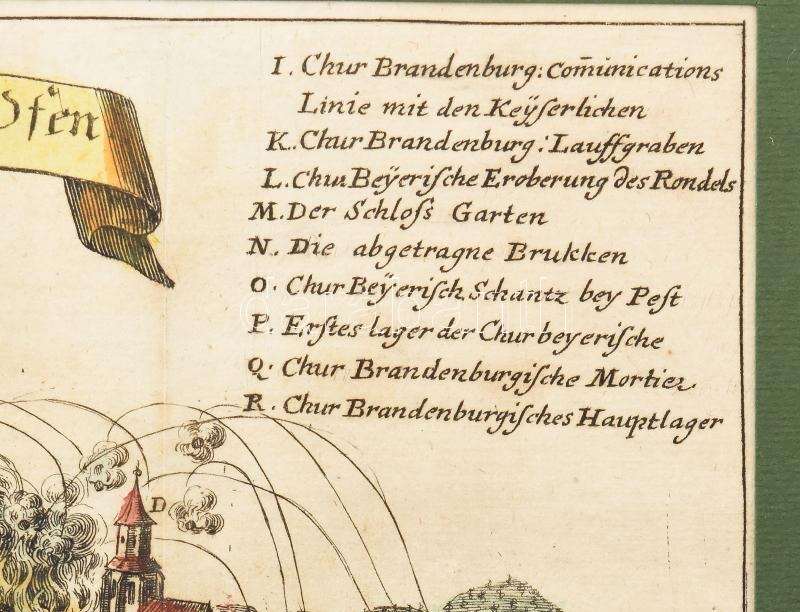 Ofen
I. Chur Brandenburg: Com̄unications
Linie mit den Keÿserlichen
K. Chur Brandenburg: Lauffgraben
L. Chur Beÿeriſche Eroberung des Rondels
M. Der Schloſs Garten
N. Die abgetragne Brukken
O. Chur Beÿeriſch. Schantz bey Peſt
P. Erſtes lager der Churbeyeriſche
Q. Chur Brandenburgiſche Mortier
R. Chur Brandenburgiſches Hauptlager
D
darabanth